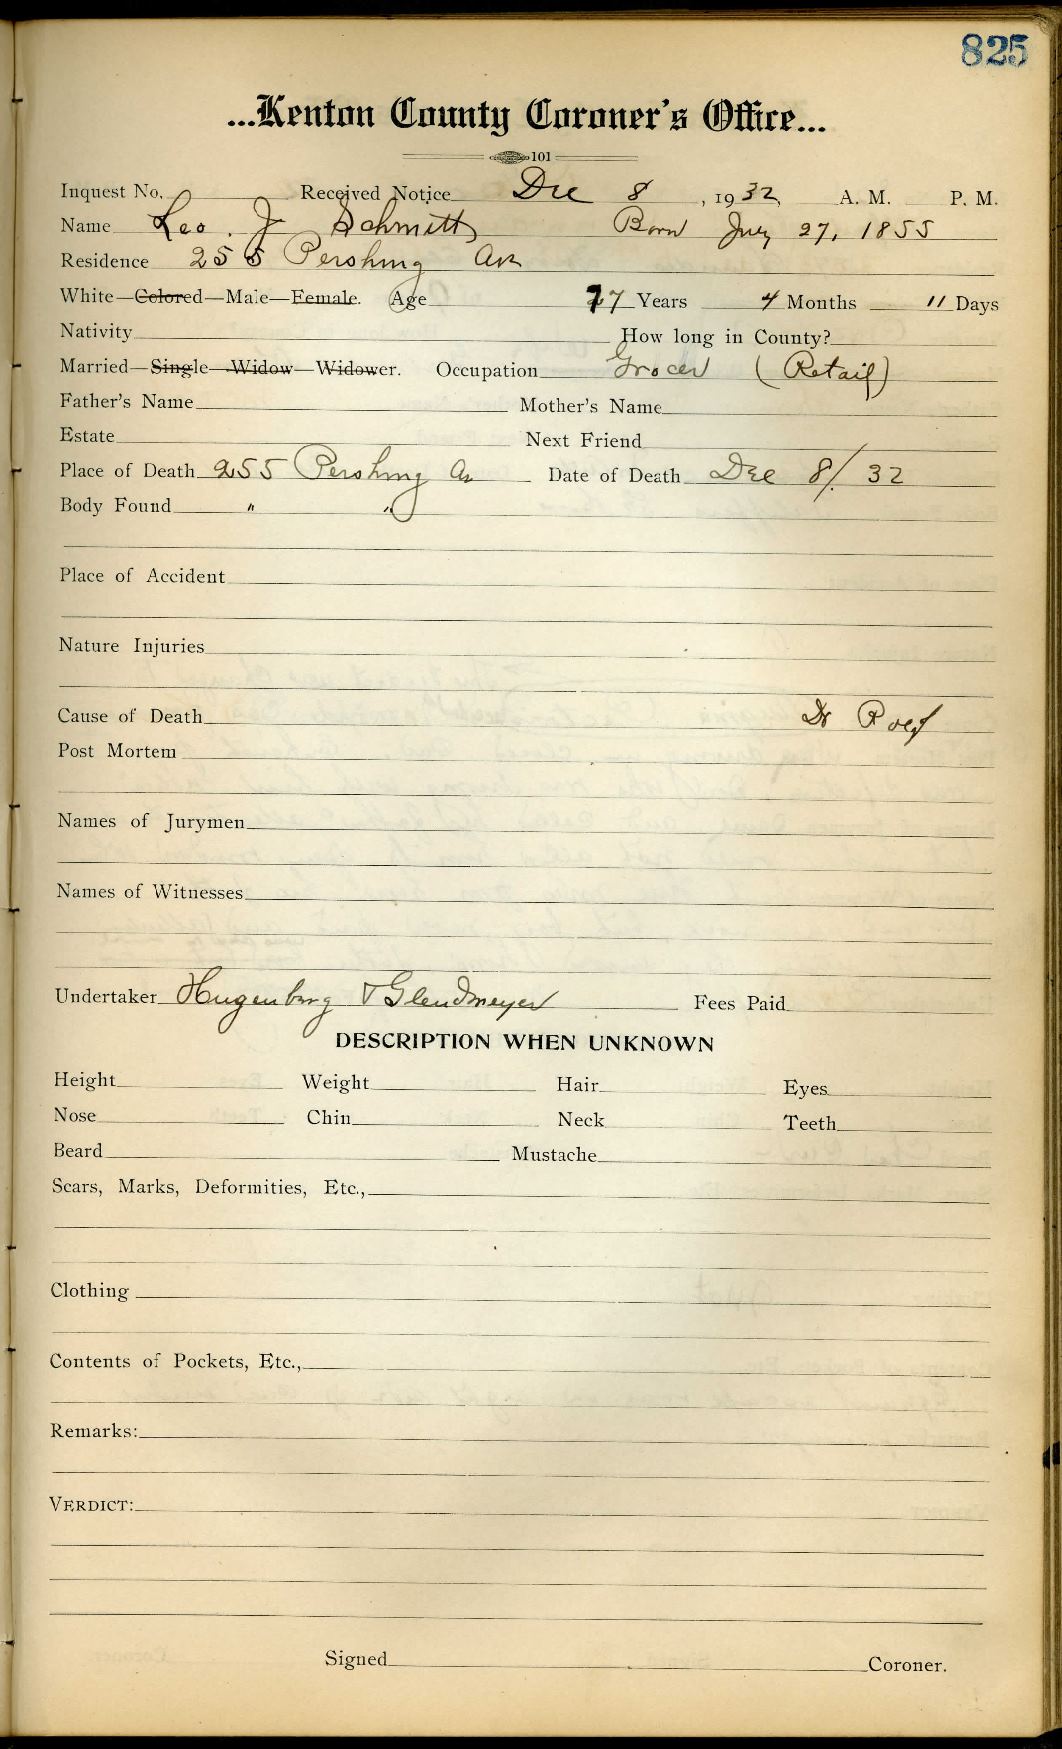 825
...Kenton County Coroner's Office...
101
Inquest No. Received Notice Dec 8, 1932, A. M. P. M.
Name Leo. J Schmitt Born July 27, 1855
Residence 255 Pershing Av
White—Colored—Male—Female. Age 77 Years 4 Months 11 Days
Nativity How long in County?
Married—Single—Widow—Widower. Occupation Grocer (Retail)
Father's Name Mother's Name
Estate Next Friend
Place of Death 255 Pershing Av Date of Death Dec 8/32
Body Found " "
Place of Accident
Nature Injuries
Cause of Death Dr
Post Mortem
Names of Jurymen
Names of Witnesses
Undertaker Hugenberg & Glendmeyer Fees Paid
DESCRIPTION WHEN UNKNOWN
Height Weight Hair Eyes
Nose Chin Neck Teeth
Beard Mustache
Scars, Marks, Deformities, Etc.,
Clothing
Contents of Pockets, Etc.,
Remarks:
VERDICT:
Signed Coroner.